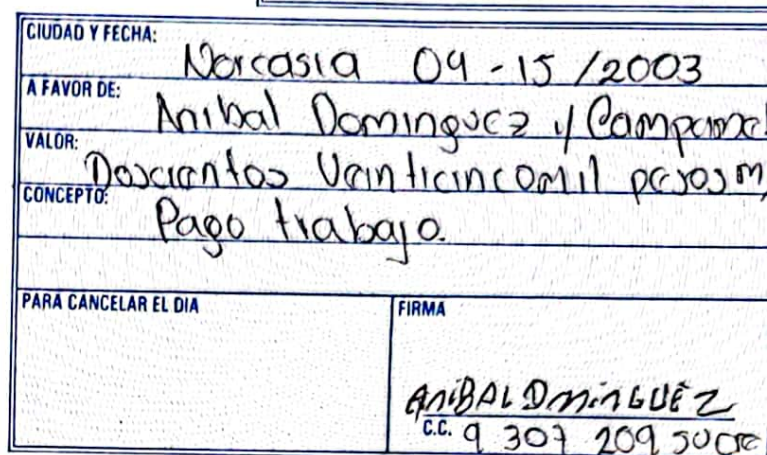 CIUDAD Y FECHA: Norcasia 09-15/2003
A FAVOR DE: Anibal Dominguez y
VALOR: Doscientos Veinticincomil pesos m
CONCEPTO: Pago trabajo.
PARA CANCELAR EL DIA
FIRMA
ANIBAL DMINGUEZ
C.C. 9 307 209 sucre